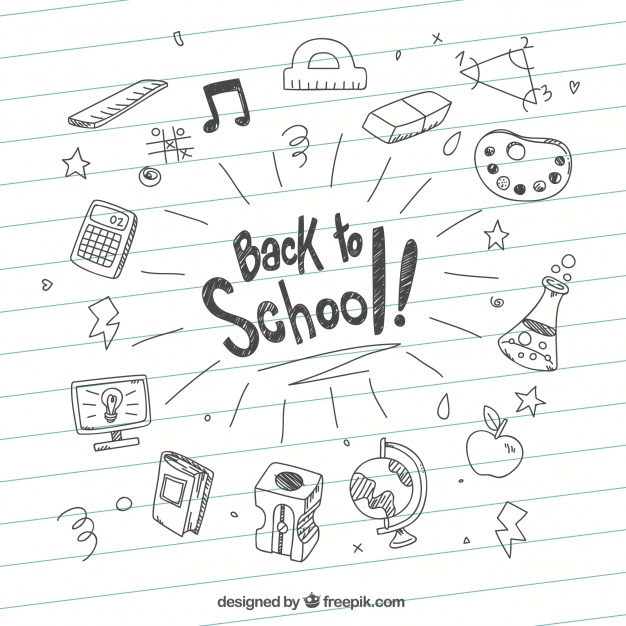 1 2
3
O O
X
X
02
Back to
School!
designed by freepik.com